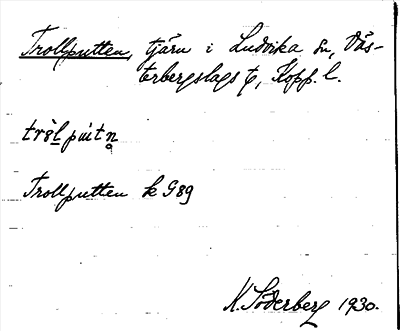 Trollputten, tjärn i Ludvika sn, Väs-
terbergslags t, Kopp. l.
Trollputten k G89
K. Söderberg 1930.